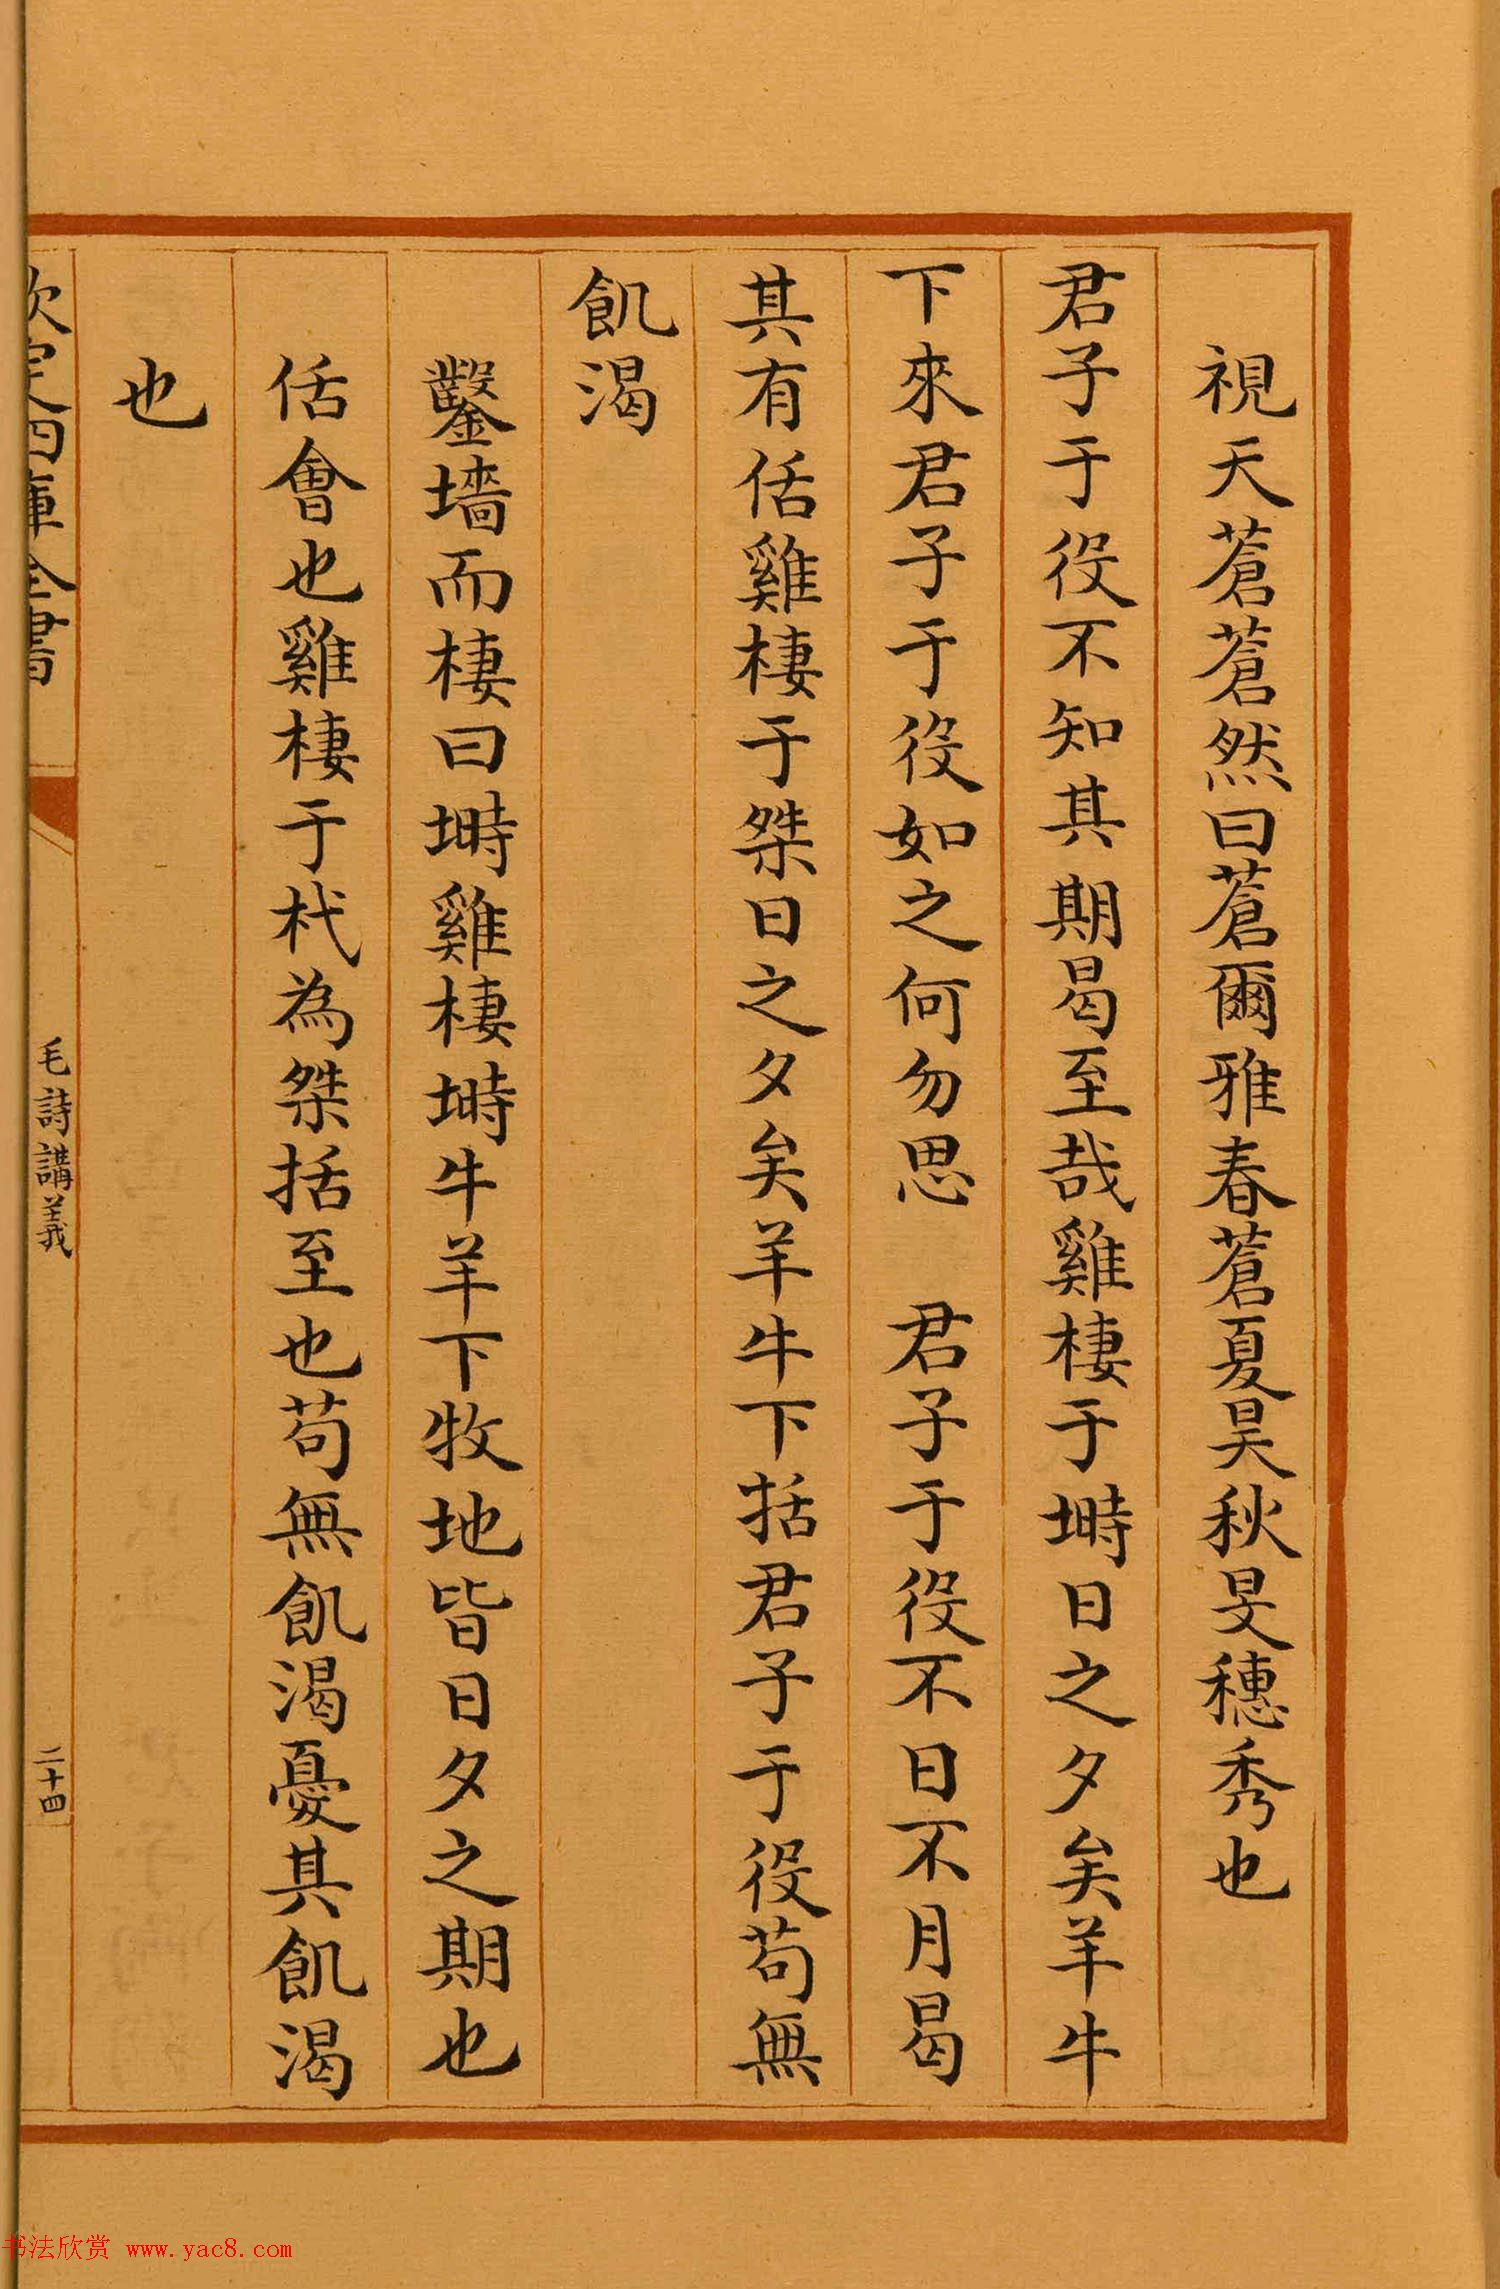 視天蒼蒼然曰蒼爾雅春蒼夏昊秋旻穗秀也
君子于役不知其期曷至哉雞棲于塒日之夕矣羊牛
下來君子于役如之何勿思　君子于役不日不月曷
其有佸雞棲于桀日之夕矣羊牛下括君子于役苟無
飢渴
鑿墻而棲曰塒雞棲塒牛羊下牧地皆日夕之期也
佸會也雞棲于杙為桀括至也苟無飢渴憂其飢渴
也
欽定四庫全書
毛詩講義
二十四
书法欣赏 www.yac8.com